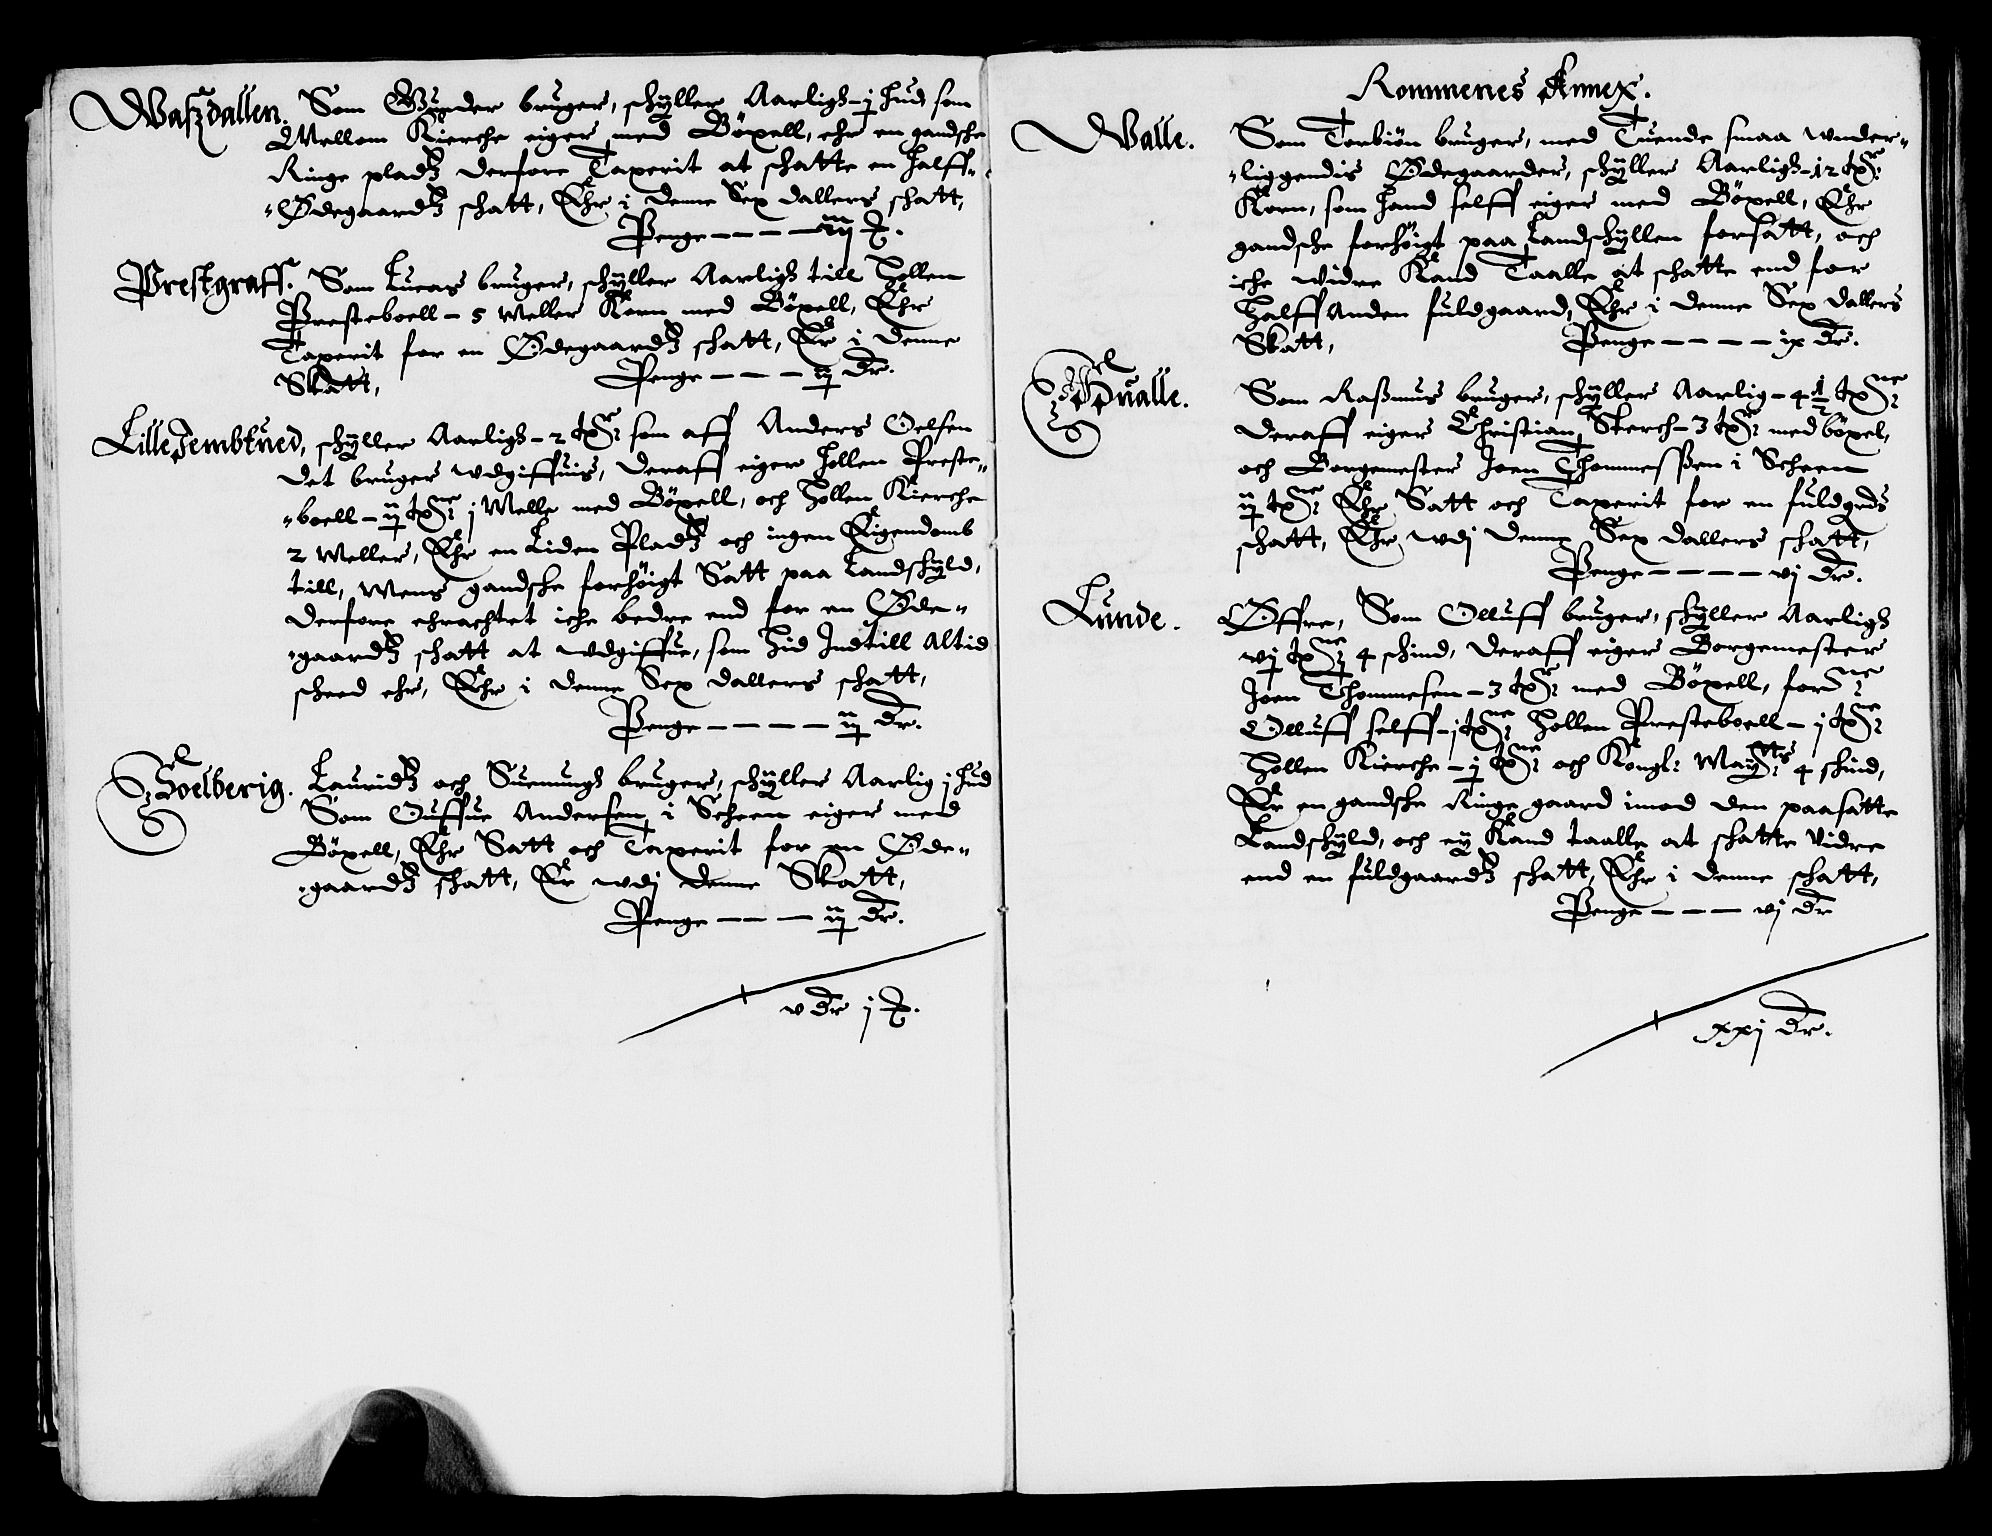 Waszdallen. Som Gunder bruger, schÿller Aarligh - j Hud, som
Mellom Kierche eiger med Böxell, ehr en gandsche
Ringe pladtz derfore Taxerit at schatte en halff-
Ødegaardtz schatt, Ehr i denne Sex dallers schatt,
Penge - - - -
Prestgraff. Som Lucas bruger, schÿller Aarligh till Hollen
Presteboell - 5 Meller Korn med Böxell, Ehr
Taxerit for en Ødegaardtz schatt, Er i denne
Skatt,
Penge - - - ij Dr.
Lille Jembtued, schÿller Aarligh - 2 tnr som aff Anders Oelsen
det bruger wdgiffuis, deraff eiger Hollen Preste-
boell - ij tne j Melle med Böxell, och Hollen Kierche
2 Meller, Ehr en Liden Pladtz och ingen Eigendomb
till, Mens gandsche forhöigt Satt paa Landschÿld,
derfore ehrachtet iche bedre end for en Øde-
gaardtz schatt at wdgiffue, som hid Indtill altid
scheed ehr, Ehr i denne Sex dallers schatt,
Penge - - - - ij Dr.
Soelberig. Lauridtz och Suenungh bruger, schÿller Aarlig j Hud
Som Ouffue Andersen i Scheen eiger med
Böxell, Ehr Satt och Taxerit for en Øde-
gaardtz schatt, Er wdj denne Skatt,
Penge - - - ij Dr.
v Dr j
Rommenes Annex.
Walle. Som Torbiön bruger, med Tuende smaa wnder-
liggendis Ødegaarder, schÿller Aarligh - 12 tnr
Korn, som hand selff eiger med Böxell, Ehr
gandsche forhöigt paa Landschÿllen forsatt, och
iche widre Kand Taalle at schatte end for
Halff Anden fuldgaard, Ehr i denne Sex dallers
Skatt,
Penge - - - - ix Dr.
Hualle. Som Raßmus bruger, schÿller Aarlig - 4 1/2 tne
deraff eiger Christian Sterch - 3 tnr med böxel,
och Borgemester Joen Thommeßen i Scheen
tne Ehr Satt och Taxerit for en fuldgrds
schatt, Ehr wdj denne Sex dallers schatt,
Penge - - - - vj Dr.
Lunde. Øffre, Som Olluff bruger, schÿller Aarligh
vj tne 4 schind, deraff eiger Borgemester
Joen Thommesen - 3 tnr med Böxell, forne
Olluff selff - j tne Hollen Presteboell - j tne
Hollen Kierche - j tne och Kongl: Maÿtts 4 schind,
Er en gandske Ringe gaard imod den paasatte
Landschÿld, och eÿ Kand taalle at schatte vidre
end en fuldgaardtz schatt, Ehr i denne schatt,
Penge - - - vj Dr
xxj Dr.